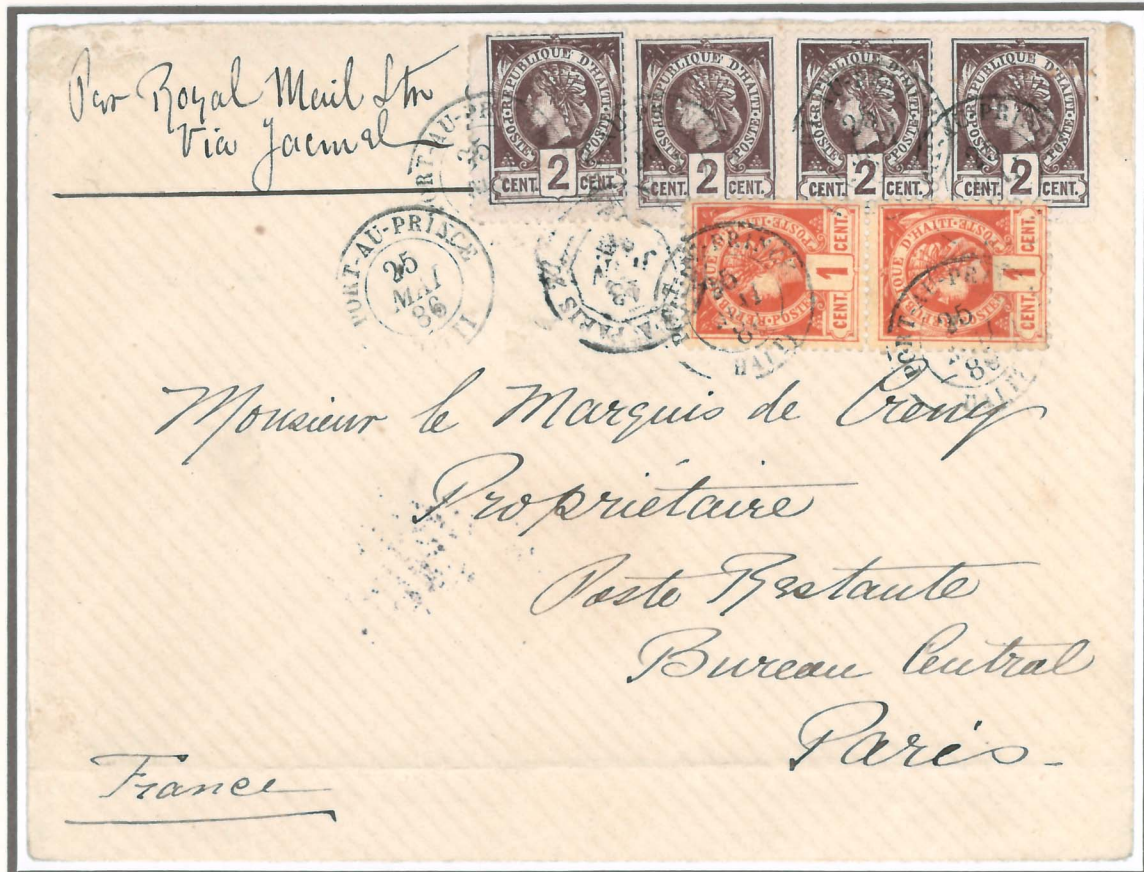 Par Royal Mail Str
Via Jacmel
REPUBLIQUE D'HAITI
POSTE POSTE
CENT. 2 CENT.
REPUBLIQUE D'HAITI
POSTE POSTE
CENT. 2 CENT.
REPUBLIQUE D'HAITI
POSTE POSTE
CENT. 2 CENT.
REPUBLIQUE D'HAITI
POSTE POSTE
CENT. 2 CENT.
REPUBLIQUE D'HAITI
POSTE POSTE
1 CENT. CENT.
REPUBLIQUE D'HAITI
POSTE POSTE
1 CENT. CENT.
PORT-AU-PRINCE
25
MAI
86
HAITI
25
86
HAITI
A PARIS
Monsieur le Marquis de
Propriétaire
Poste Restante
Bureau Central
Paris
France